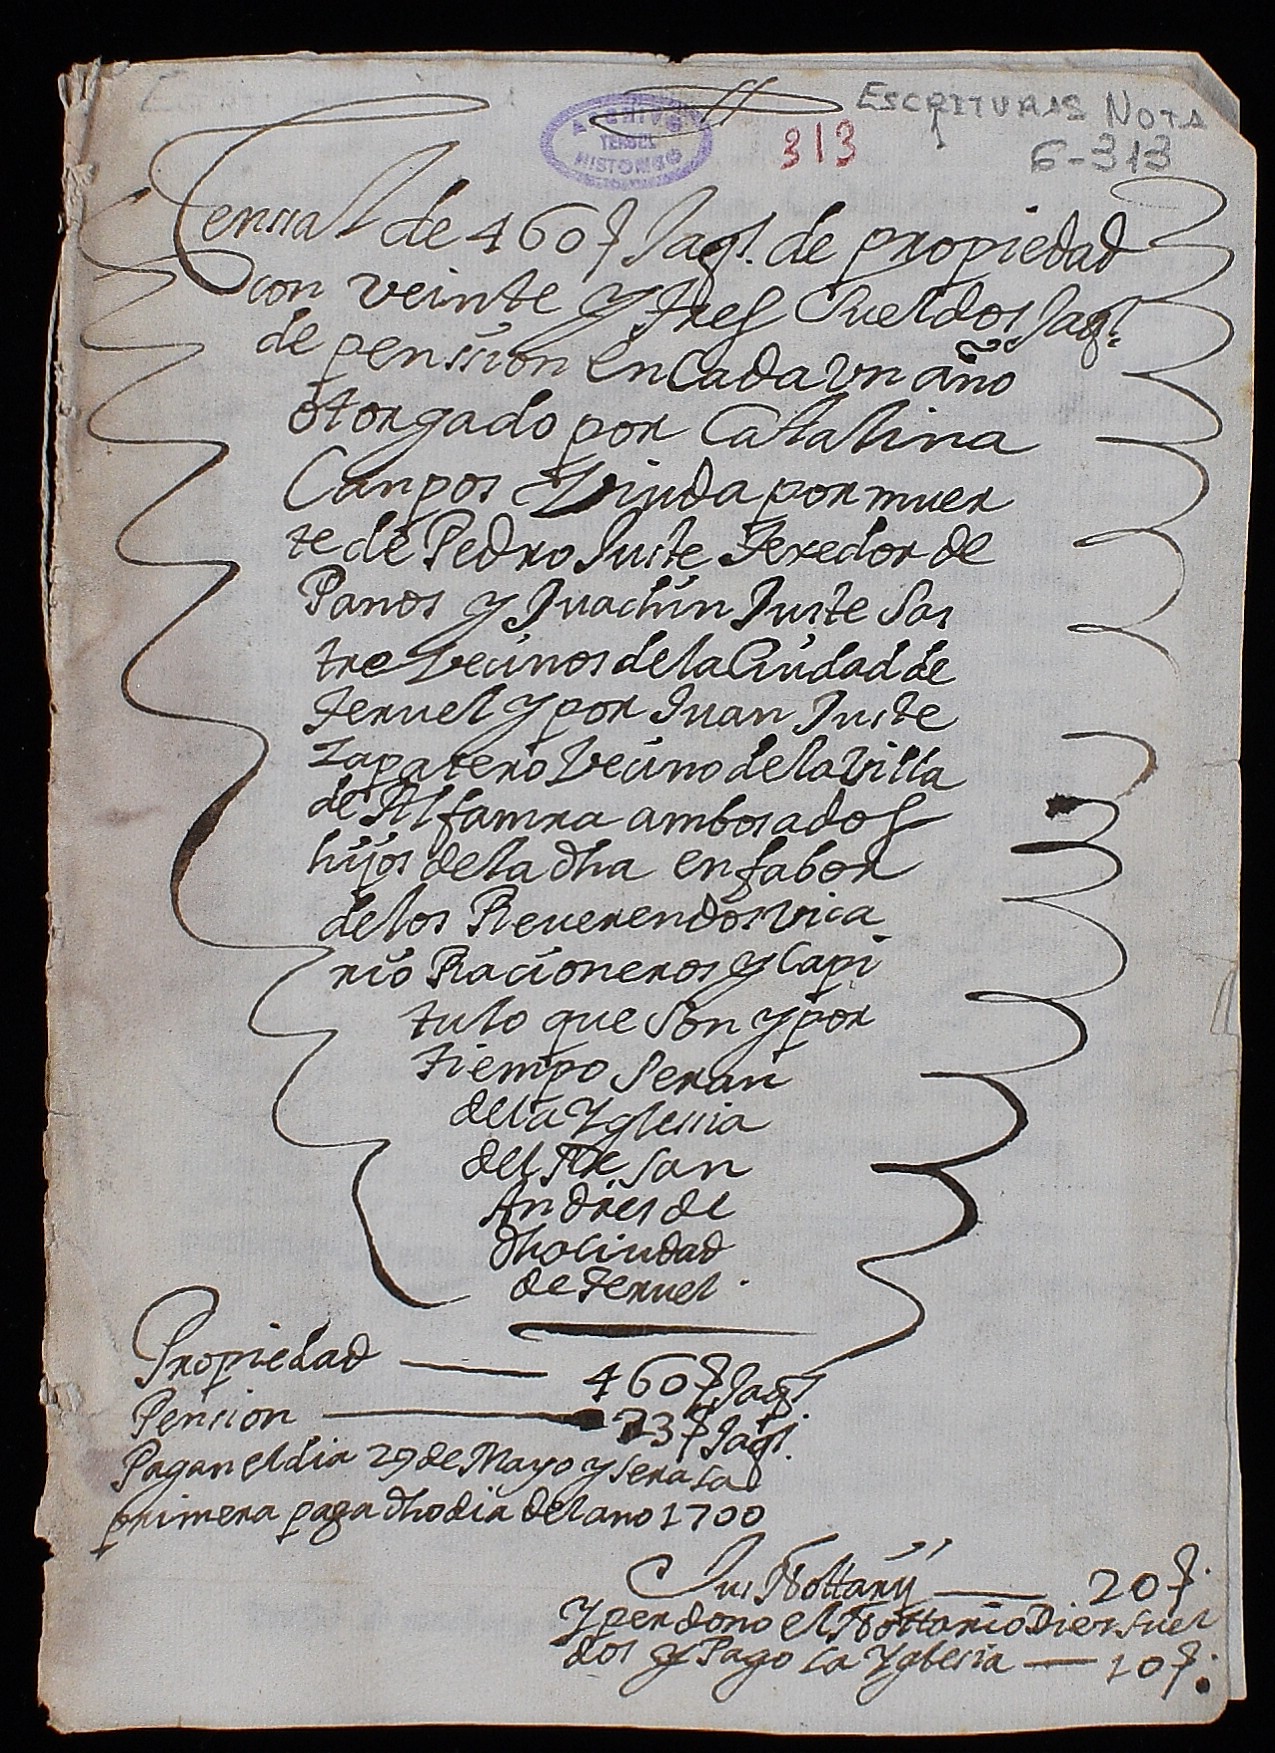 ESCRITURAS NOTA
6-313
313
ARCHIVO
TERUEL
HISTORICO
Censsal de 460 ʃ Jaqs. de propiedad
con veinte y tres Sueldos Jaqs.
de penssion en Cada Vn año
otorgado por Catalina
Canpos Viuda por muer
te de Pedro Juste Texedor de
Panos y Juachin Juste Sas
tre Vecinos de la Ciudad de
Teruel y por Juan Juste
Zapatero Vecino de la Villa
de Alfamra ambos ados
hijos de la dha en fabor
de los Reuerendos Vica
rio Racioneros y Capi
tulo que son y por
tiempo seran
de la Yglessia
del Sr San
Andres de
dha Ciudad
de Teruel.
Propiedad — 460 ʃ Jaqs
Pension — 23 ʃ Jaqs.
Pagan el dia 29 de Mayo y sera la
primera paga dho dia del ano 1700
Jus Nottarij — 20 ʃ.
Y perdono el Nottario Dies suel
dos y Pago la Yglesia — 10 ʃ.